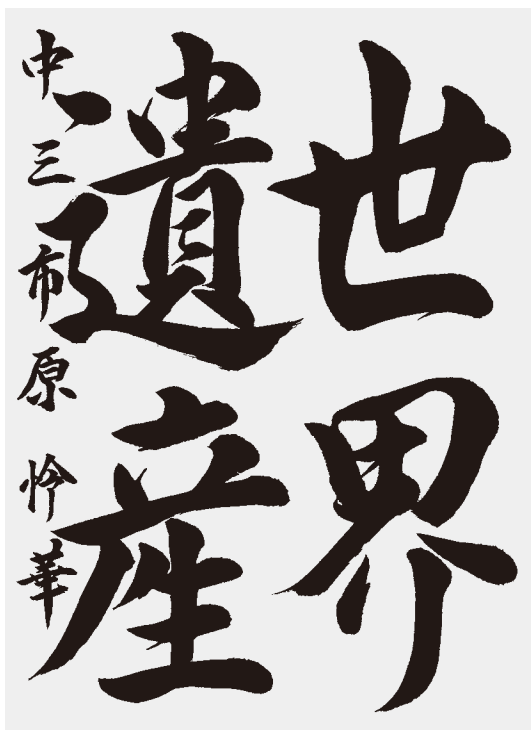 世界
遺産
中三 市原 怜華